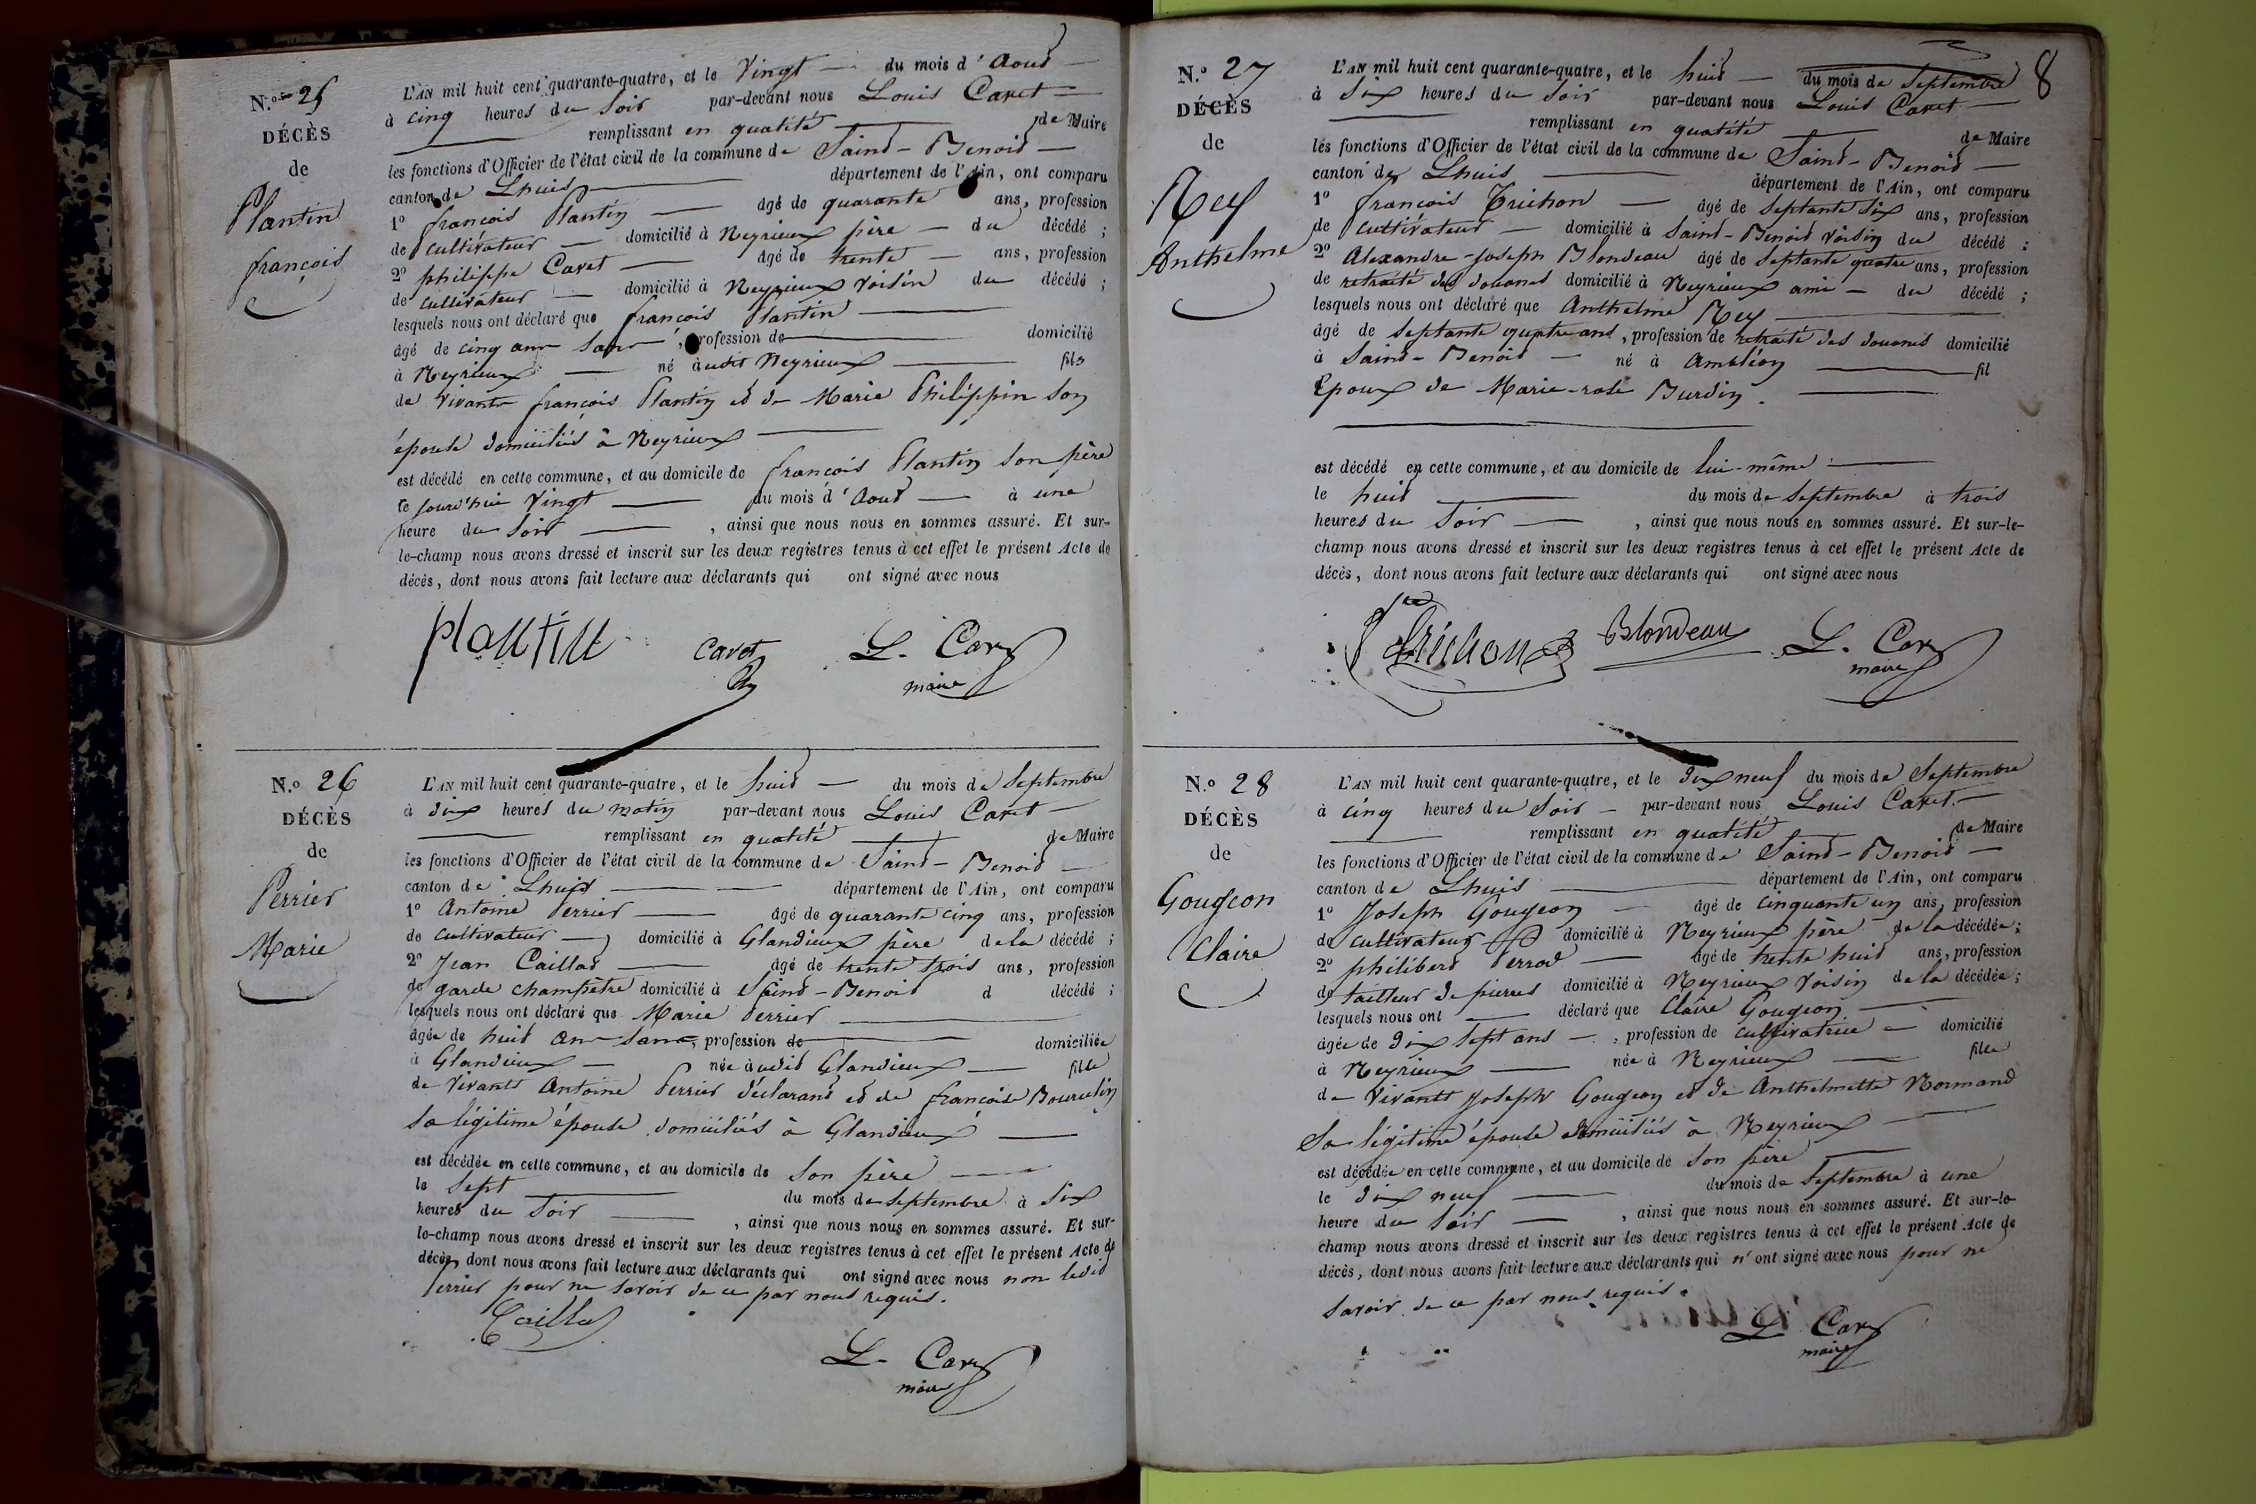 N.º 25
DÉCÈS
de
Plantin
françois
L'AN mil huit cent quarante-quatre, et le Vingt — du mois d'Aoud —
à cinq heures du soir par-devant nous Louis Caret —
— remplissant en qualité — de Maire
les fonctions d'Officier de l'état civil de la commune de Saind-Benoid —
canton de Lhuis — département de l'Ain, ont comparu
1º françois Plantin — âgé de quarante ans, profession
de cultivateur — domicilié à Neyrieux père — du décédé ;
2º philippe Caret — âgé de trente — ans, profession
de cultivateur — domicilié à Neyrieux voisin du décédé ;
lesquels nous ont déclaré que françois Plantin —
âgé de cinq ans sans, profession de — domicilié
à Neyrieux — né audit Neyrieux — fils
de vivants françois Plantin et de Marie Philippin son
épouse domiciliés à Neyrieux —
est décédé en cette commune, et au domicile de françois Plantin son père
ce jourd'hui Vingt — du mois d'Aoud — à une
heure du soir — , ainsi que nous nous en sommes assuré. Et sur-
le-champ nous avons dressé et inscrit sur les deux registres tenus à cet effet le présent Acte de
décès, dont nous avons fait lecture aux déclarants qui ont signé avec nous
plantin caret L. Caret
maire
N.º 26
DÉCÈS
de
Perrier
Marie
L'AN mil huit cent quarante-quatre, et le huid — du mois de Septembre
à dix heures du matin par-devant nous Louis Caret —
— remplissant en qualité — de Maire
les fonctions d'Officier de l'état civil de la commune de Saind-Benoid —
canton de Lhuis — département de l'Ain, ont comparu
1º Antoine Perrier — âgé de quarante cinq ans, profession
de cultivateur — domicilié à Glandieux père de la décédé ;
2º Jean Caillad — âgé de trente trois ans, profession
de garde champêtre domicilié à Saind-Benoid d décédé ;
lesquels nous ont déclaré que Marie Perrier —
âgée de huid ans sans, profession de — domiciliée
à Glandieux — née audid Glandieux — fille
de vivants Antoine Perrier déclarand et de françoise Bourrelin
sa légitime épouse domiciliés à Glandieux —
est décédée en cette commune, et au domicile de son père —
le sept — du mois de septembre à six
heures du soir — , ainsi que nous nous en sommes assuré. Et sur-
le-champ nous avons dressé et inscrit sur les deux registres tenus à cet effet le présent Acte de
décès, dont nous avons fait lecture aux déclarants qui ont signé avec nous non ledid
Perrier pour ne savoir de ce par nous requis.
Caillad
L. Caret
maire
8
N.º 27
DÉCÈS
de
Rey
Anthelme
L'AN mil huit cent quarante-quatre, et le huid — du mois de Septembre
à six heures du soir par-devant nous Louis Caret —
— remplissant en qualité — de Maire
les fonctions d'Officier de l'état civil de la commune de Saind-Benoid —
canton de Lhuis — département de l'Ain, ont comparu
1º françois Trichon — âgé de septante six ans, profession
de cultivateur — domicilié à Saind-Benoid voisin du décédé ;
2º Alexandre-joseph Blondeau âgé de septante quatre ans, profession
de retraité des douanes domicilié à Neyrieux ami — du décédé ;
lesquels nous ont déclaré que Anthelme Rey —
âgé de septante quatre ans, profession de retraité des douanes domicilié
à Saind-Benoid — né à Ambléon — fil
Epoux de Marie-rose Burdin. —
est décédé en cette commune, et au domicile de lui-même —
le huid — du mois de septembre à trois
heures du soir — , ainsi que nous nous en sommes assuré. Et sur-le-
champ nous avons dressé et inscrit sur les deux registres tenus à cet effet le présent Acte de
décès, dont nous avons fait lecture aux déclarants qui ont signé avec nous
Trichon Blondeau L. Caret
maire
N.º 28
DÉCÈS
de
Gougeon
Claire
L'AN mil huit cent quarante-quatre, et le dix neuf du mois de Septembre
à cinq heures du soir — par-devant nous Louis Caret. —
— remplissant en qualité — de Maire
les fonctions d'Officier de l'état civil de la commune de Saind-Benoid —
canton de Lhuis — département de l'Ain, ont comparu
1º Joseph Gougeon — âgé de cinquante un ans, profession
de cultivateur domicilié à Neyrieux père de la décédée ;
2º philiberd Perrod — âgé de trente huid ans, profession
de tailleur de pierres domicilié à Neyrieux voisin de la décédée ;
lesquels nous ont — déclaré que Claire Gougeon —
âgée de dix sept ans —, profession de cultivatrice — domicilié
à Neyrieux — née à Neyrieux — fille
de vivants Joseph Gougeon et de Anthelmette Normand
sa légitime épouse domiciliés à Neyrieux —
est décédée en cette commune, et au domicile de son père —
le dix neuf — du mois de septembre à une
heure du soir — , ainsi que nous nous en sommes assuré. Et sur-le-
champ nous avons dressé et inscrit sur les deux registres tenus à cet effet le présent Acte de
décès, dont nous avons fait lecture aux déclarants qui n'ont signé avec nous pour ne
savoir de ce par nous requis.
L. Caret
maire